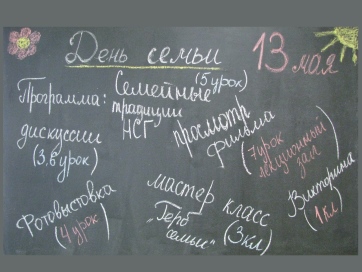 День семьи
13 мая
Программа:
Семейные
(5 урок)
традиции
НСГ
дискуссии
(3,6 урок)
просмотр
фильма
(7 урок
лекционный
зал)
Фотовыставка
(4 урок)
мастер класс
"Герб
семьи" (3кл)
Викторина
(1кл)